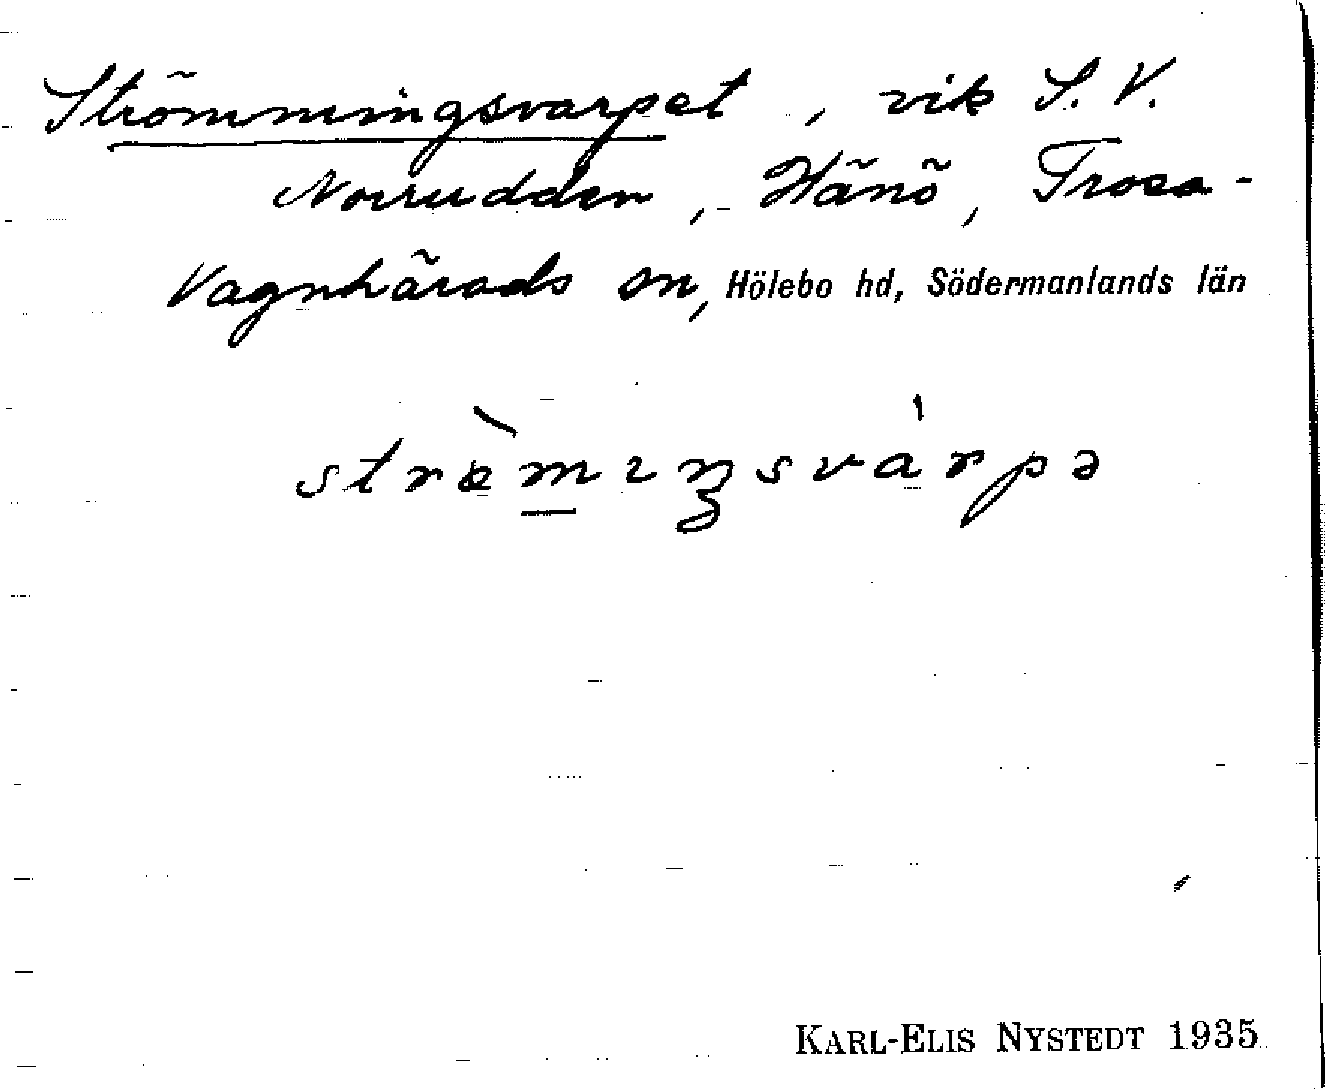 Strömmingsvarpet, vik S.V.
Norrudden, Hänö, Trosa-
Vagnhärads sn, Hölebo hd, Södermanlands län
strø̀mıŋsvárpə
KARL-ELIS NYSTEDT 1935